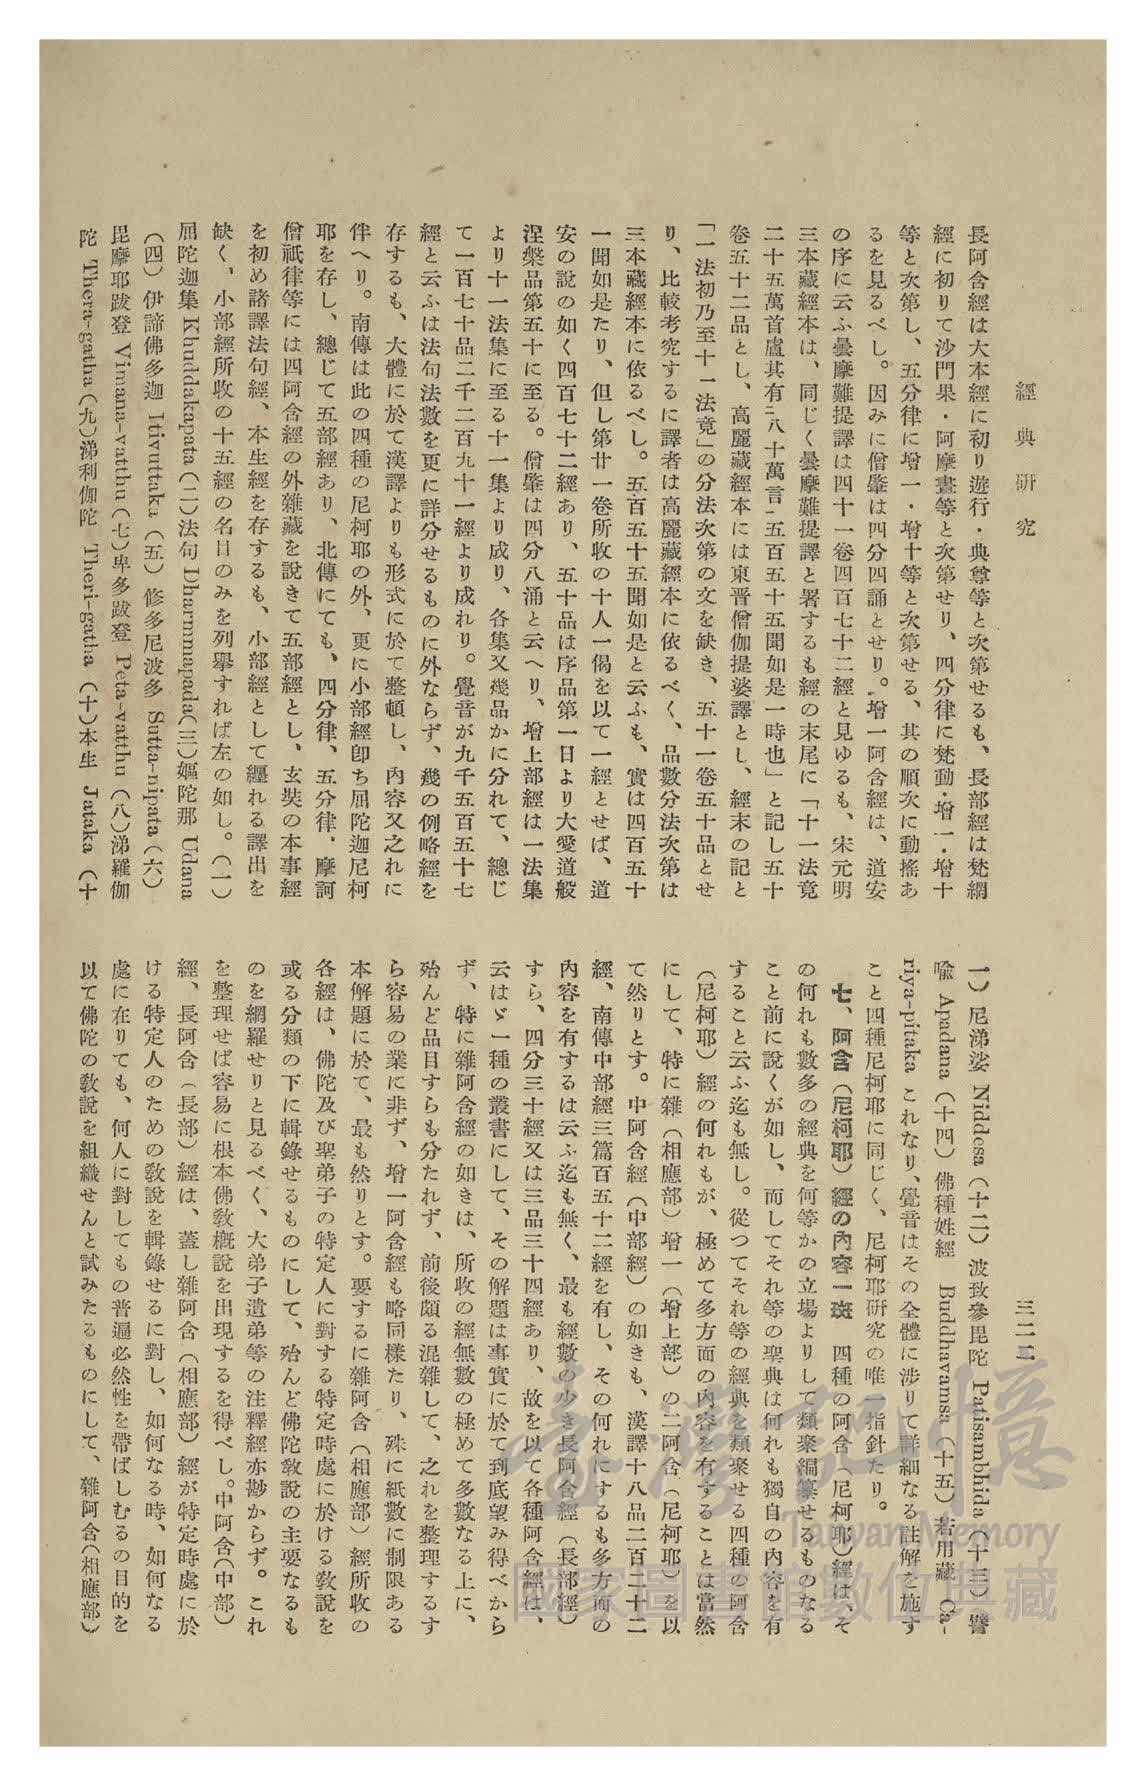 經典研究
三二二
長阿含經は大本經に初り遊行・典尊等と次第せるも、長部經は梵網
經に初りて沙門果・阿摩晝等と次第せり、四分律に梵動・增一・增十
等と次第し、五分律に增一・增十等と次第せる、其の順次に動搖あ
るを見るべし。因みに僧肇は四分四誦とせり。增一阿含經は、道安
の序に云ふ曇摩難提譯は四十一卷四百七十二經と見ゆるも、宋元明
三本藏經本は、同じく曇摩難提譯と署するも經の末尾に「十一法竟
二十五萬首盧其有二八十萬言一五百五十五聞如是一時也」と記し五十
卷五十二品とし、高麗藏經本には東晋僧伽提婆譯とし、經末の記と
「一法初乃至十一法竟」の分法次第の文を缺き、五十一卷五十品とせ
り、比較考究するに譯者は高麗藏經本に依るべく、品數分法次第は
三本藏經本に依るべし。五百五十五聞如是と云ふも、實は四百五十
一聞如是たり、但し第廿一卷所收の十人一偈を以て一經とせば、道
安の說の如く四百七十二經あり、五十品は序品第一日より大愛道般
涅槃品第五十に至る。僧肇は四分八涌と云へり、增上部經は一法集
より十一法集に至る十一集より成り、各集又幾品かに分れて、總じ
て一百七十品二千二百九十一經より成れり。覺音が九千五百五十七
經と云ふは法句法數を更に詳分せるものに外ならず、幾の例略經を
存するも、大體に於て漢譯よりも形式に於て整頓し、內容又之れに
伴へり。南傳は此の四種の尼柯耶の外、更に小部經卽ち屈陀迦尼柯
耶を存し、總じて五部經あり、北傳にても、四分律、五分律、摩訶
僧祇律等には四阿含經の外雜藏を說きて五部經とし、玄奘の本事經
を初め諸譯法句經、本生經を存するも、小部經として纒れる譯出を
缺く、小部經所收の十五經の名目のみを列擧すれば左の如し。(一)
屈陀迦集 Khuddakapata(二)法句 Dharmmapada(三)嫗陀那 Udana
(四)伊諦佛多迦 Itivuttaka(五)修多尼波多 Sutta-nipata(六)
毘摩耶跋登 Vimana-vatthu(七)卑多跋登 Peta-vatthu(八)涕羅伽
陀 Thera-gatha(九)涕利伽陀 Theri-gatha(十)本生 Jataka(十
一)尼涕娑 Niddesa(十二)波致參毘陀 Patisambhida(十三)譬
喩 Apadana(十四)佛種姓經 Buddhavamsa(十五)若用藏 Ca-
riya-pitaka これなり、覺音はその全體に涉りて詳細なる註解を施す
こと四種尼柯耶に同じく、尼柯耶硏究の唯一指針たり。
七、阿含(尼柯耶)經の內容一斑 四種の阿含(尼柯耶)經は、そ
の何れも數多の經典を何等かの立場よりして類聚編纂せるものなる
こと前に說くが如し、而してそれ等の聖典は何れも獨自の內容を有
すること云ふ迄も無し。從つてそれ等の經典を類聚せる四種の阿含
(尼柯耶)經の何れもが、極めて多方面の內容を有することは當然
にして、特に雜(相應部)增一(增上部)の二阿含(尼柯耶)を以
て然りとす。中阿含經(中部經)の如きも、漢譯十八品二百二十二
經、南傳中部經三篇百五十二經を有し、その何れにするも多方面の
內容を有するは云ふ迄も無く、最も經數の少き長阿含經(長部經)
すら、四分三十經又は三品三十四經あり、故を以て各種阿含經は、
云はゞ一種の叢書にして、その解題は事實に於て到底望み得べから
ず、特に雜阿含經の如きは、所收の經無數の極めて多數なる上に、
殆んど品目すらも分たれず、前後頗る混雜して、之れを整理するす
ら容易の業に非ず、增一阿含經も略同樣たり、殊に紙數に制限ある
本解題に於て、最も然りとす。要するに雜阿含(相應部)經所收の
各經は、佛陀及び聖弟子の特定人に對する特定時處に於ける敎說を
或る分類の下に輯錄せるものにして、殆んど佛陀敎說の主要なるも
のを網羅せりと見るべく、大弟子遺弟等の注釋經亦尠からず。これ
を整理せば容易に根本佛敎槪說を出現するを得べし。中阿含(中部)
經、長阿含(長部)經は、蓋し雜阿含(相應部)經が特定時處に於
ける特定人のための敎說を輯錄せるに對し、如何なる時、如何なる
處に在りても、何人に對してもの普遍必然性を帶ばしむるの目的を
以て佛陀の敎說を組織せんと試みたるものにして、雜阿含(相應部)
臺灣記憶
Taiwan Memory
國家圖書館數位典藏